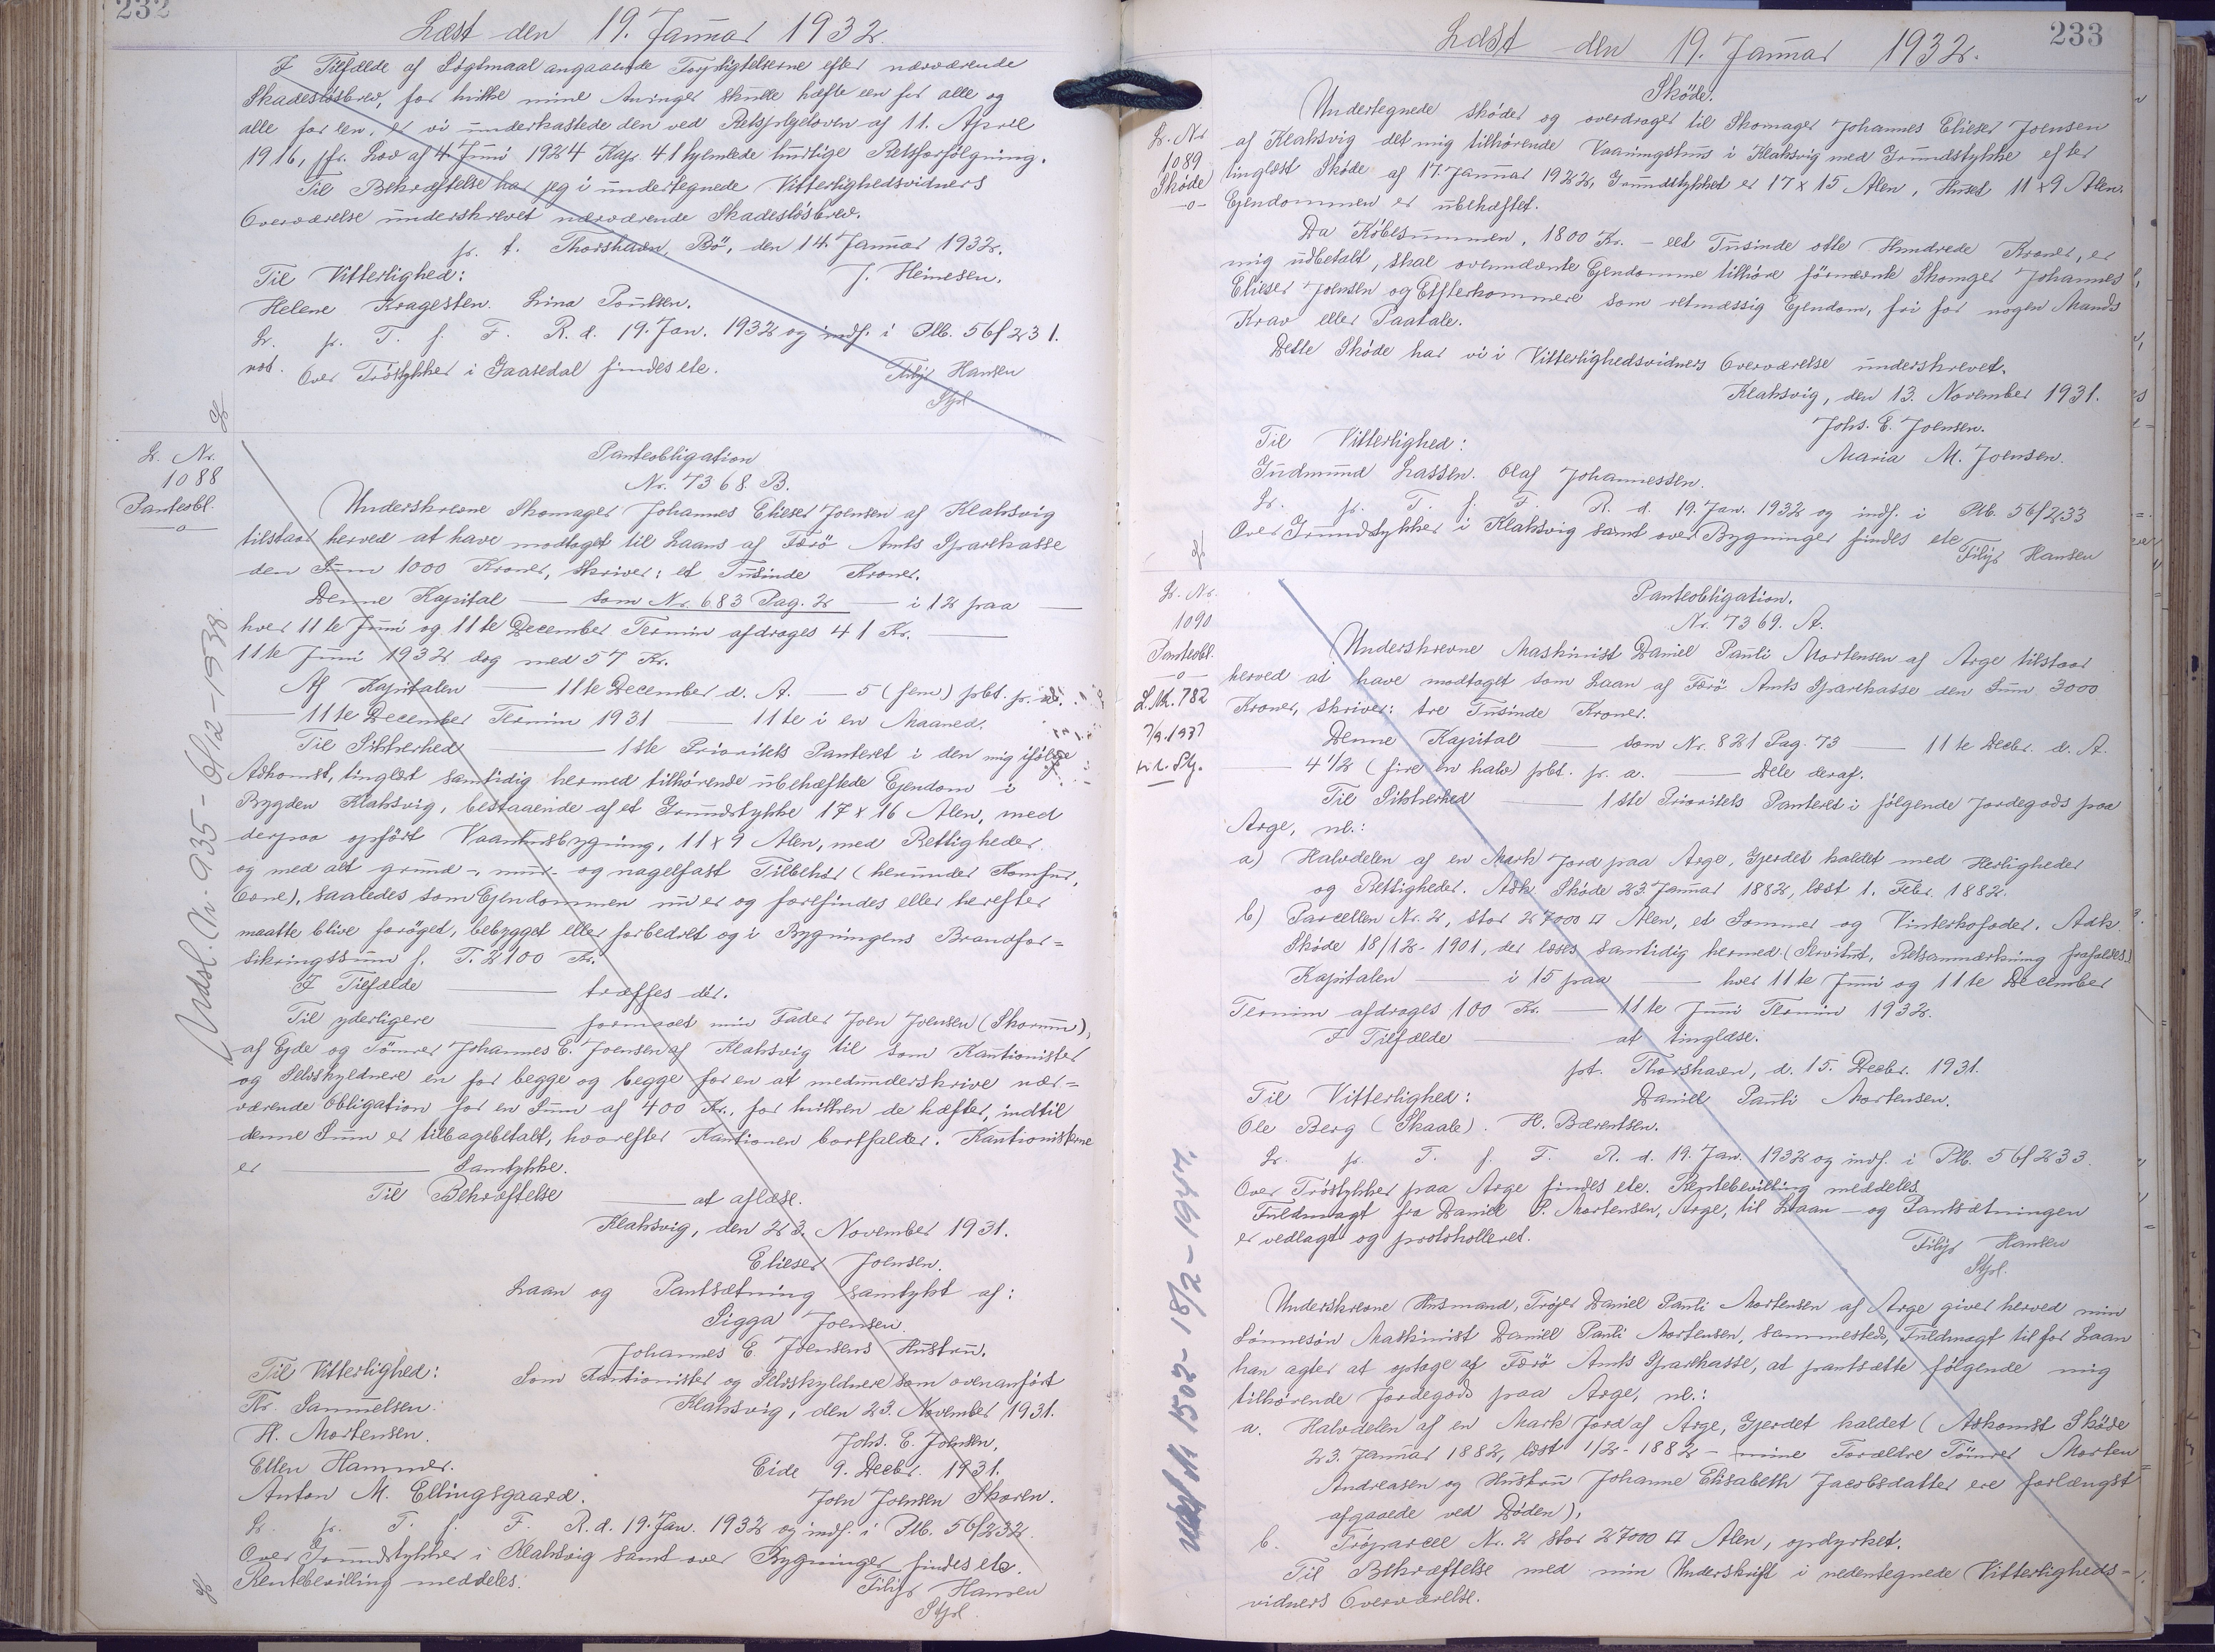 232
Læst den 19. Januar 1932.
I Tilfælde af Søgsmaal angaaende Forpligtelserne efter nærværende
Skadesløsbrev, for hvilke mine Arvinger skulle hæfte een for alle og
alle for een, er vi underkastede den ved Retsplejeloven af 11. April
1916, jfr. Lov af 4. Juni 1924 Kap. 41 hjemlede hurtige Retsforfølgning.
Til Bekræftelse har jeg i undertegnede Vitterlighedsvidners
Overværelse underskrevet nærværende Skadesløsbrev.
p. t. Thorshavn, Bö, den 14. Januar 1932.
Til Vitterlighed: J. Heinesen.
Helene Kragesten. Lina Poulsen.
Lr. pr. T. f. F. R. d. 19. Jan. 1932 og indf. i Ptb. 56/231.
not. Over Tröstykker i Gaasedal findes etc. Filip Hansen
Stpl
L. Nr.
1088
Panteobl.
Panteobligation
Nr. 7368. B.
Underskrevne Skomager Johannes Elieser Joensen af Klaksvig
tilstaar herved at have modtaget til Laans af Færö Amts Sparekasse
den Sum 1000 Kroner, skriver: et Tusinde Kroner.
Denne Kapital — som Nr. 683 Pag. 2 — i 12 paa —
hver 11te Juni og 11te December Termin afdrages 41 Kr. —
11te Juni 1932 dog med 57 Kr.
Af Kapitalen — 11te December d. A. — 5 (fem) pCt. pr. a.
— 11te December Termin 1931 — 11te i en Maaned.
Til Sikkerhed — 1ste Prioritets Panteret i den mig ifølge
Adkomst, tinglæst samtidig hermed tilhörende ubehæftede Ejendom i
Bygden Klaksvig, bestaaende af et Grundstykke 17 x 16 Alen, med
derpaa opfört Vaanhusbygning, 11 x 9 Alen, med Rettigheder
og med alt grund-, mur- og nagelfast Tilbehör (herunder Komfur,
Ovne), saaledes som Ejendommen nu er og forefindes eller herefter
maatte blive foröget, bebygget eller forbedret og i Bygningens Brandfor=
sikringssum p. T. 2100 Kr.
I Tilfælde — træffes dér.
Til yderligere — formaaet min Fader Joen Joensen (Skorum),
af Ejde og Tömrer Johannes E. Joensen af Klaksvig til som Kautionister
og Selvskyldnere en for begge og begge for en at medunderskrive nær=
værende Obligation for en Sum af 400 Kr., for hvilken de hæfter, indtil
denne Sum er tilbagebetalt, hvorefter Kautionen bortfalder. Kautionisterne
er — Samtykke.
Til Bekræftelse — at aflæse.
Klaksvig, den 23. November 1931.
Elieser Joensen.
Laan og Pantsætning samtykt af:
Sigga Joensen.
Johannes E. Joensens Hustru.
Til Vitterlighed: Som Kautionister og Selvskyldnere som ovenanført
Fr. Samuelsen. Klaksvig, den 23. November 1931.
H. Mortensen. Johs. E. Joensen.
Ellen Hammer. Eide 9. Decbr. 1931.
Anton M. Ellingsgaard. Joen Joensen Skoren.
Lr. pr. T. f. F. R. d. 19. Jan. 1932 og indf. i Ptb. 56/232.
Over Grundstykker i Klaksvig samt over Bygninger findes etc.
Rentebevilling meddeles. Filip Hansen
Stpl.
Udsl. Nr. 935 - 6/12 - 1938.
233
Læst den 19. Januar 1932.
L. Nr
1089
Sköde
Sköde.
Undertegnede sköder og overdrager til Skomager Johannes Elieser Joensen
af Klaksvig det mig tilhörende Vaaningshus i Klaksvig med Grundstykke efter
tinglæst Sköde af 17. Januar 1922, Grundstykket er 17 x 15 Alen, Huset 11 x 9 Alen.
Ejendommen er ubehæftet.
Da Köbesummen, 1800 Kr. - eet Tusinde otte Hundrede Kroner, er
mig udbetalt, skal ovennævnte Ejendomme tilhöre förnævnte Skomager Johannes
Elieser Joensen og Efterkommere som retmæssig Ejendom, fri for nogen Mands
Krav eller Paatale.
Dette Sköde har vi i Vitterlighedsvidners Overværelse underskrevet.
Klaksvig, den 13. November 1931.
Johs. E. Joensen.
Til Vitterlighed: Maria M. Joensen.
Gudmund Lassen. Olaf Johannessen.
Lr. pr. T. f. F. R. d. 19. Jan. 1932 og indf. i Ptb. 56/233
Over Grundstykker i Klaksvig samt over Bygninger findes etc
Filip Hansen
L. Nr.
1090
Panteobl.
L. Nr. 782
7/9.1937
Panteobligation.
Nr. 7369. A.
Underskrevne Maskinist Daniel Pauli Mortensen af Arge tilstaar
herved at have modtaget som Laan af Færö Amts Sparekasse den Sum 3000
Kroner, skriver: tre Tusinde Kroner.
Denne Kapital — som Nr. 821 Pag. 73 — 11te Decbr. d. A.
— 4 1/2 (fire en halv) pCt. pr. a. — Dele deraf.
Til Sikkerhed — 1ste Prioritets Panteret i følgende Jordegods paa
Arge, nl.:
a) Halvdelen af en Mark Jord paa Arge, Gjerdet kaldet med Herligheder
og Rettigheder. Adk. Sköde 23. Januar 1882, læst 1. Febr. 1882.
b) Parcellen Nr. 2, stor 27000 □ Alen, et Sommer og Vinterkofoder. Adk
Sköde 18/12-1901, der læses samtidig hermed (Servitut, Retsanmærkning frafaldes)
Kapitalen — i 15 paa — hver 11te Juni og 11te December
Termin afdrages 100 Kr. — 11te Juni Termin 1932.
I Tilfælde — at tinglæse.
pt. Thorshavn, d. 15. Decbr. 1931.
Til Vitterlighed: Daniel Pauli Mortensen.
Ole Berg (Skaale). H. Bærentsen.
Lr. pr. T. f. F. R. d. 19. Jan. 1932 og indf. i Ptb. 56/233.
Over Tröstykker paa Arge findes etc. Rentebevilling meddeles
Fuldmagt fra Daniel P. Mortensen, Arge, til Laan- og Pantsætningen
er vedlagt og protokolleret. Filip Hansen
Stpl.
Underskrevne Husmand, Tröjer Daniel Pauli Mortensen af Arge giver herved min
Sönnesön Maskinist Daniel Pauli Mortensen, sammesteds, Fuldmagt til for Laan
han agter at optage af Færö Amts Sparekasse, at pantsætte følgende mig
tilhørende Jordegods paa Arge, nl.:
a. Halvdelen af en Mark Jord af Arge, Gjerdet kaldet (Adkomst Sköde
23. Januar 1882, læst 1/2-1882 - mine Forældre Tömrer Morten
Andreasen og Hustru Johanne Elisabeth Jacobsdatter ere forlængst
afgaaede ved Døden),
b. Tröparcel Nr. 2 stor 27000 □ Alen, opdyrket.
Til Bekræftelse med min Underskrift i nedentegnede Vitterligheds-
vidners Overværelse.
Udsl Nr 1502 - 18/2 - 1947.